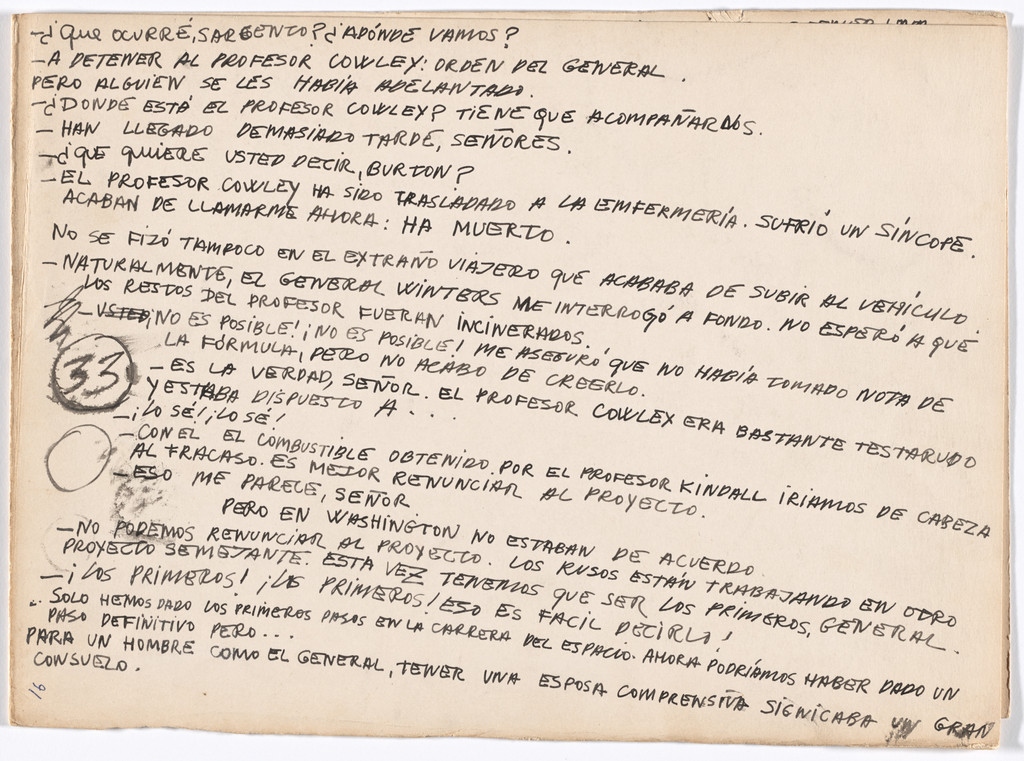 -¿QUE OCURRE, SARGENTO? ¿ADÓNDE VAMOS?
- A DETENER AL PROFESOR COWLEY: ORDEN DEL GENERAL.
PERO ALGUIEN SE LES HABÍA ADELANTADO.
-¿DONDE ESTÁ EL PROFESOR COWLEY? TIENE QUE ACOMPAÑARNOS.
- HAN LLEGADO DEMASIADO TARDE, SEÑORES.
-¿QUE QUIERE USTED DECIR, BURTON?
- EL PROFESOR COWLEY HA SIDO TRASLADADO A LA EMFERMERÍA. SUFRIÓ UN SÍNCOPE.
ACABAN DE LLAMARME AHORA: HA MUERTO.
NO SE FIZÓ TAMPOCO EN EL EXTRAÑO VIAJERO QUE ACABABA DE SUBIR AL VEHÍCULO.
- NATURALMENTE, EL GENERAL WINTERS ME INTERROGÓ A FONDO. NO ESPERÓ A QUE
LOS RESTOS DEL PROFESOR FUERAN INCINERADOS.
- USTED ¡NO ES POSIBLE! ¡NO ES POSIBLE! ME ASEGURÓ QUE NO HABÍA TOMADO NOTA DE
LA FÓRMULA, PERO NO ACABO DE CREERLO.
33
- ES LA VERDAD, SEÑOR. EL PROFESOR COWLEY ERA BASTANTE TESTARUDO
Y ESTABA DISPUESTO A....
-¡LO SÉ! ¡LO SÉ!
- CON EL EL COMBUSTIBLE OBTENIDO POR EL PROFESOR KINDALL IRIAMOS DE CABEZA
AL FRACASO. ES MEJOR RENUNCIAR AL PROYECTO.
- ESO ME PARECE, SEÑOR.
PERO EN WASHINGTON NO ESTABAN DE ACUERDO.
- NO PODEMOS RENUNCIAR AL PROYECTO. LOS RUSOS ESTÁN TRABAJANDO EN OTRO
PROYECTO SEMEJANTE. ESTA VEZ TENEMOS QUE SER LOS PRIMEROS, GENERAL.
- ¡LOS PRIMEROS! ¡LOS PRIMEROS! ESO ES FACIL DECIRLO!
.. SOLO HEMOS DADO LOS PRIMEROS PASOS EN LA CARRERA DEL ESPACIO. AHORA PODRÍAMOS HABER DADO UN
PASO DEFINITIVO PERO...
PARA UN HOMBRE COMO EL GENERAL, TENER UNA ESPOSA COMPRENSIVA SIGNICABA UN GRAN
CONSUELO.
16